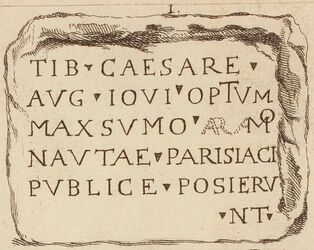 1.
TIB ▾ CAESARE ▾
AVG ▾ IOVI ▾ OPTVMO
MAXSVMO ▾ ARAM
NAVTAE ▾ PARISIACI
PVBLICE ▾ POSIERV
▾ NT ▾